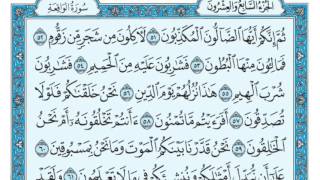 الجُزْءُ السَّابِعُ وَالعِشْرُونَ سُورَةُ الوَاقِعَةِ
ثُمَّ إِنَّكُمْ أَيُّهَا ٱلضَّآلُّونَ ٱلْمُكَذِّبُونَ ٥١ لَآكِلُونَ مِن شَجَرٍ مِّن زَقُّومٍ ٥٢
فَمَالِـُٔونَ مِنْهَا ٱلْبُطُونَ ٥٣ فَشَٰرِبُونَ عَلَيْهِ مِنَ ٱلْحَمِيمِ ٥٤ فَشَٰرِبُونَ
شُرْبَ ٱلْهِيمِ ٥٥ هَٰذَا نُزُلُهُمْ يَوْمَ ٱلدِّينِ ٥٦ نَحْنُ خَلَقْنَٰكُمْ فَلَوْلَا
تُصَدِّقُونَ ٥٧ أَفَرَءَيْتُم مَّا تُمْنُونَ ٥٨ ءَأَنتُمْ تَخْلُقُونَهُۥٓ أَمْ نَحْنُ
ٱلْخَٰلِقُونَ ٥٩ نَحْنُ قَدَّرْنَا بَيْنَكُمُ ٱلْمَوْتَ وَمَا نَحْنُ بِمَسْبُوقِينَ ٦٠
عَلَىٰٓ أَن نُّبَدِّلَ أَمْثَٰلَكُمْ وَنُنشِئَكُمْ فِى مَا لَا تَعْلَمُونَ ٦١ وَلَقَدْ